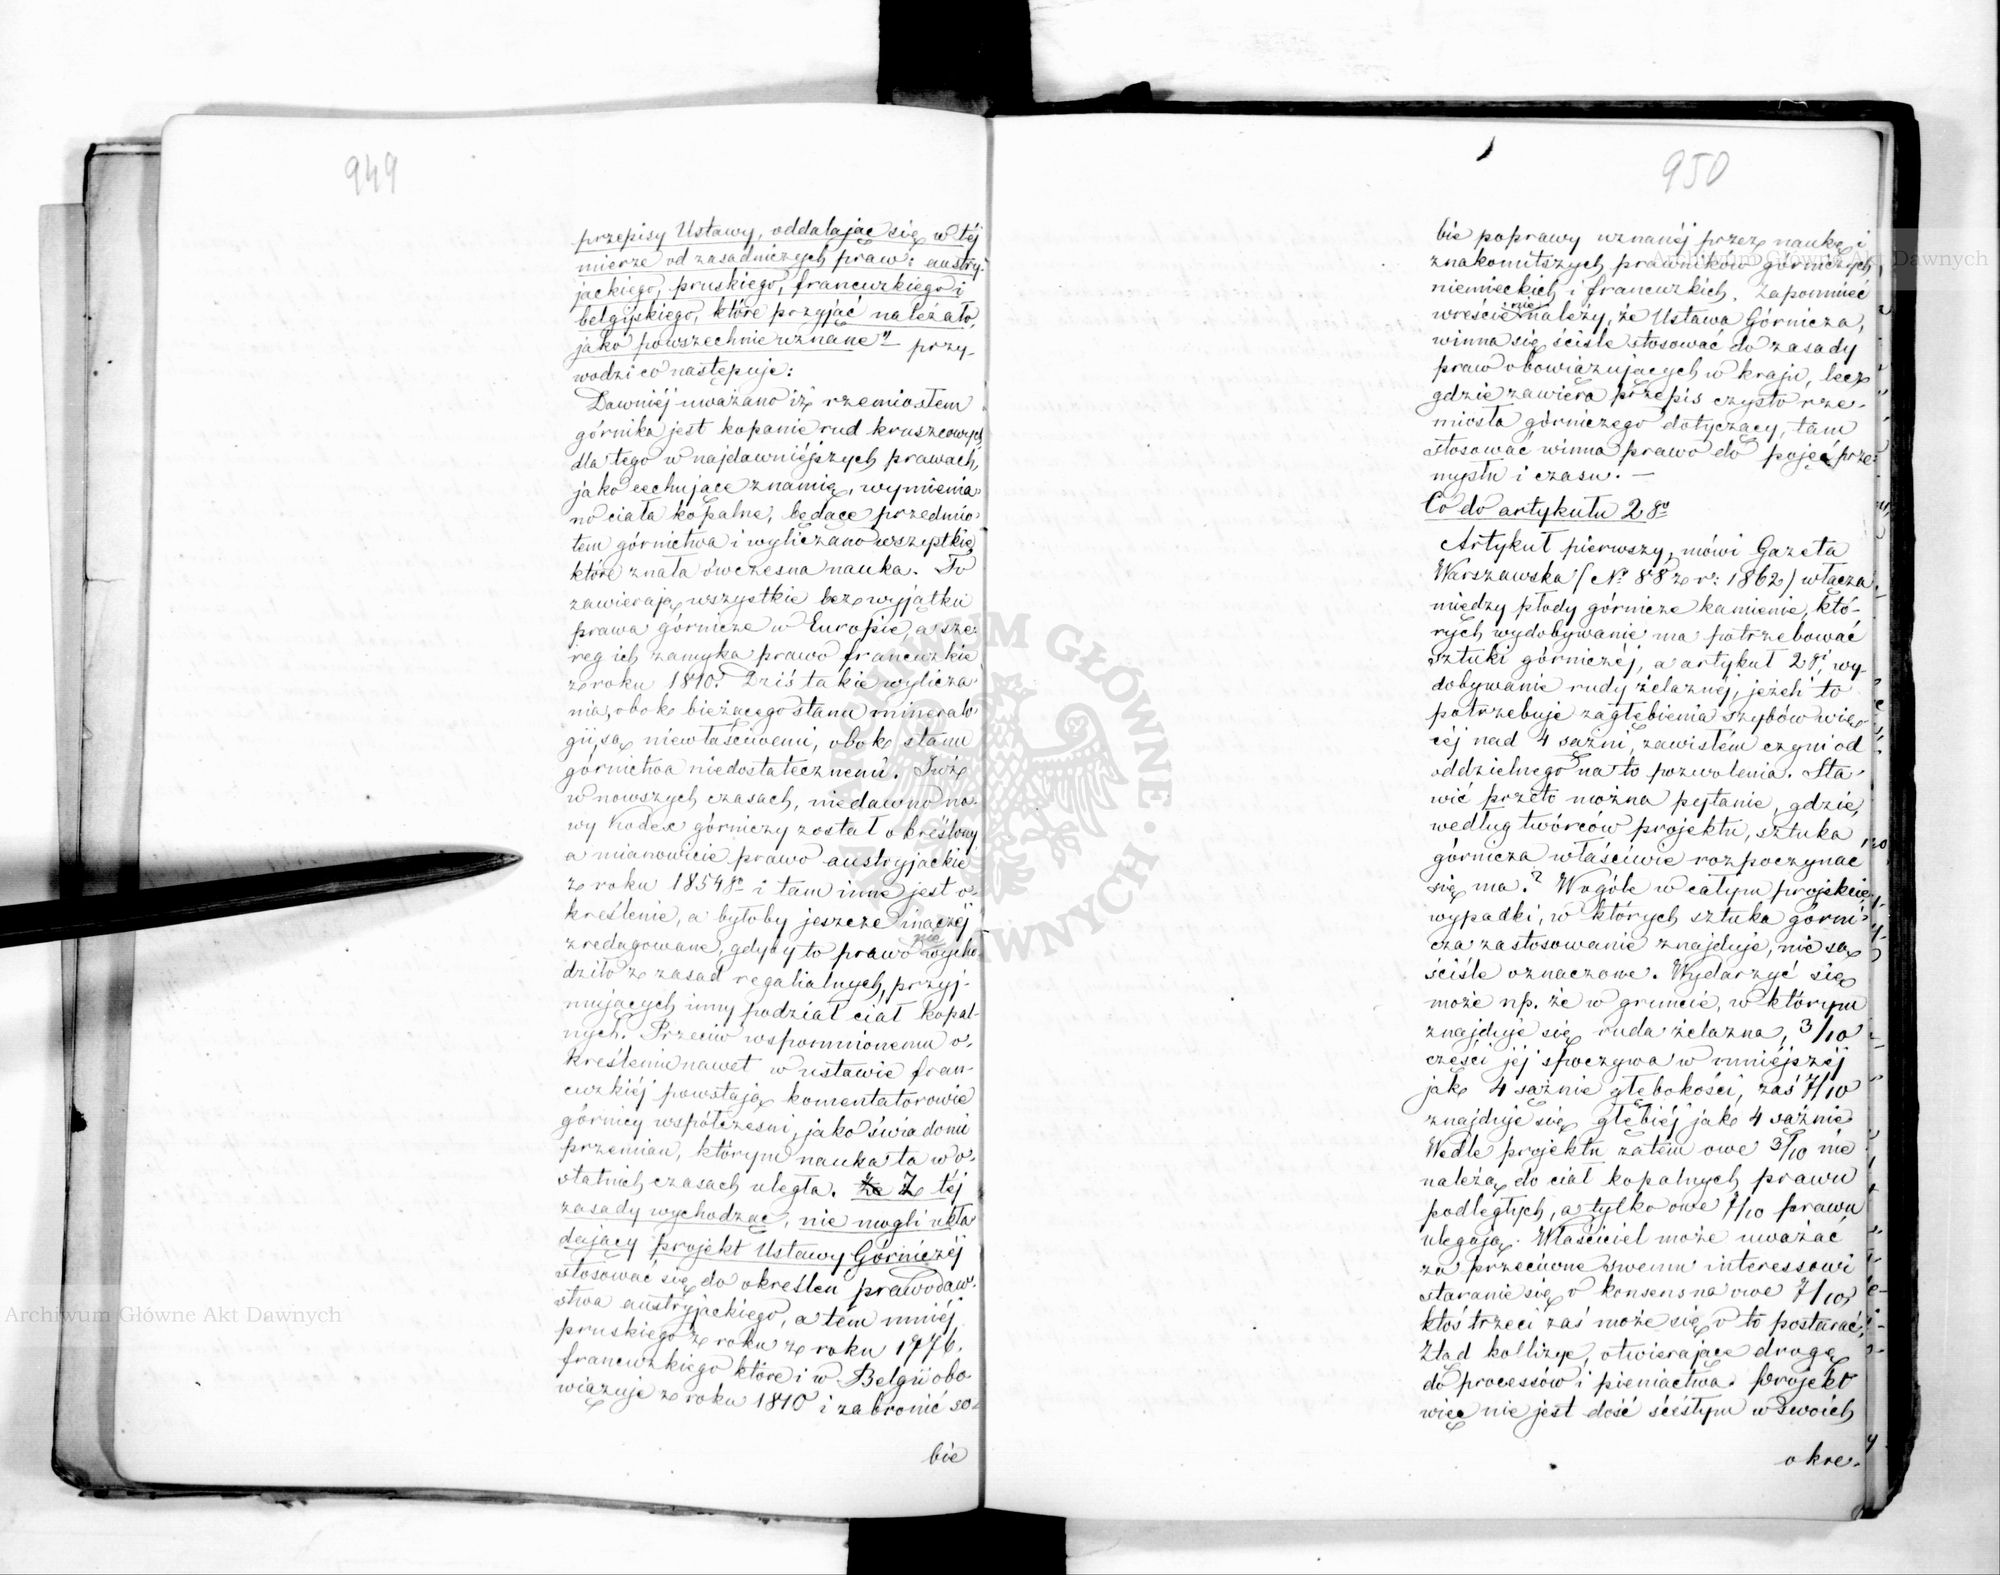 949
przepisy Ustawy, oddalając się w téj
mierze od zasadniczych praw: austry-
jackiego, pruskiego, francuzkiego i
belgijskiego, które przyjąć należało,
jako powszechnie uznane" przy-
wodzi co następuje:
Dawniéj uważano iż rzemiosłem
górnika jest kopanie rud kruszcowych
dla tego w najdawniéjszych prawach,
jako cechujące znamię, wymienia-
no ciała kopalne, będące przedmio-
tem górnictwa i wyliczano wszystkie
które znała ówczesna nauka. To
zawierają wszystkie bez wyjątku
prawa górnicze w Europie, a sze-
reg ich zamyka prawo francuzkie
z roku 1810. Dziś takie wylicza-
nia, obok bieżącego stanu mineralo-
gii, są niewłaściwemi, obok stanu
górnictwa niedostatecznemi. Już
w nowszych czasach, niedawno no-
wy Kodex górniczy został określony
a mianowicie prawo austryjackie
z roku 1854go i tam inne jest o-
kreślenie, a byłoby jeszcze inaczéj
zredagowane, gdyby to prawo nie wycho-
dziło z zasad regalialnych, przyj-
mujących inny podział ciał kopal-
nych. Przeciw wspomnionemu o-
kreśleniu nawet w ustawie fran-
cuzkiéj powstają komentatorowie
górnicy współcześni, jako świadomi
przemian, którym nauka ta w o-
statnich czasach uległa. Że Z téj
zasady wychodząc, nie mogli ukła
dający projekt Ustawy Górniczéj
stosować się do określeń prawodaw-
stwa austryjackiego, a tém mniéj
pruskiego z roku z roku 1776,
francuzkiego które i w Belgii obo-
wiązuje z roku 1810 i zabronić so-
bie
950
bie poprawy uznanéj przez naukę i
znakomitszych prawników górniczych
niemieckich i francuzkich. Zapomnieć
wreście nie należy, że Ustawa Górnicza,
winna się ściśle stosować do zasady
praw obowiązujących w kraju, lecz
gdzie zawiera przepis czysto rze-
miosła górniczego dotyczący, tam
stosować winna prawo do pojęć prze-
mysłu i czasu. —
Co do artykułu 2go
Artykuł pierwszy, mówi Gazeta
Warszawska (No 88 z r: 1862) włącza
między płody górnicze kamienie, któ-
rych wydobywanie ma potrzebować
sztuki górniczéj, a artykuł 2gi wy-
dobywanie rudy żelaznéj, jeżeli to
potrzebuje zagłębienia szybów wię-
céj nad 4 sążni, zawisłém czyni od
oddzielnego na to pozwolenia. Sta-
wić przeto można pytanie, gdzie,
według twórców projektu, sztuka
górnicza właściwie rozpoczynać
się ma? W ogóle w całym projekcie
wypadki, w których sztuka górni-
cza zastosowanie znajduje, nie są
ściśle oznaczone. Wydarzyć się
może np. że w gruncie, w którym
znajduje się ruda żelazna, 3/10
części jéj spoczywa w mniéjszéj
jak 4 sążnie głębokości, zaś 7/10
znajduje się głębiéj jak 4 sążnie
Wedle projektu zatém owe 3/10 nie
należą do ciał kopalnych prawu
podległych, a tylko owe 7/10 prawu
ulegają. Właściciel może uważać
za przeciwne swemu interessowi
staranie się o konsens na owe 7/10,
ktoś trzeci zaś może się o to postarać,
Ztąd kollizye, otwierające drogę
do processów i pieniactwa. Projekt
więc nie jest dość ścisłym w swoich
okre-
ARCHIWUM GŁÓWNE AKT DAWNYCH
Archiwum Główne Akt Dawnych
Archiwum Główne Akt Dawnych